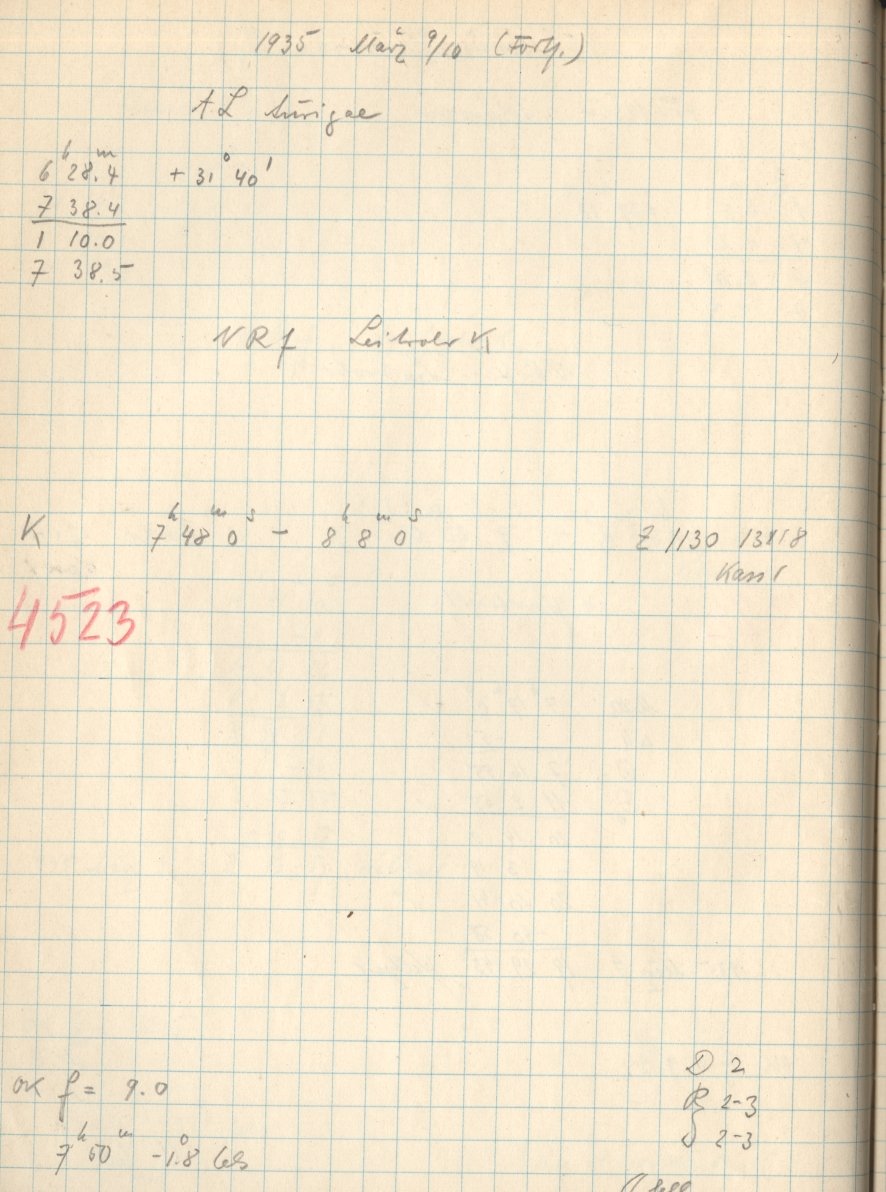 1935 März 9/10 (Forts.)
AL Aurigae
6ʰ 28.4ᵐ + 31° 40'
7 38.4
1 10.0
7 38.5
NRf Leitrohr K1
K 7ʰ 48ᵐ 0ˢ - 8ʰ 8ᵐ 0ˢ Z 1130 13x18
Kass 1
4523
OK f = 9.0
D 2
R 2-3
7ʰ 50ᵐ -1.8°
2-3